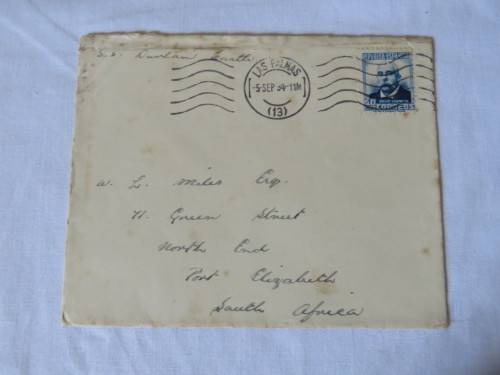 S.S. Durban Castle
LAS PALMAS
-5 SEP 34-11M
(13)
REPUBLICA ESPAÑOLA
CORREOS
W. L. Miles Esq.
71. Green Street
North End
Port Elizabeth
South Africa